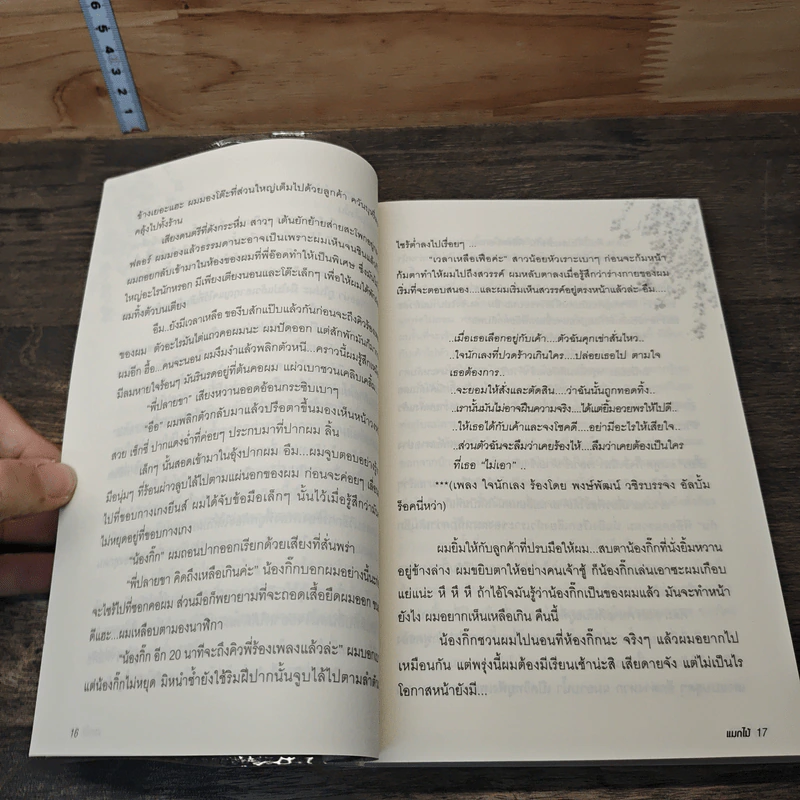 6 5 4 3 2 1
ข้างเยอะแฮะ ผมมองโต๊ะที่ส่วนใหญ่เต็มไปด้วยลูกค้า
คลุ้งไปทั้งร้าน
เสียงดนตรีที่ดังกระหึ่ม สาวๆ เต้นยักย้ายส่ายสะโพกอยู่
ฟลอร์ ผมมองแล้วธรรมดานะอาจเป็นเพราะผมเห็นจนชินแล้ว
ผมถอยกลับเข้ามาในห้องของผมที่พี่อ๊อดทำให้เป็นพิเศษ
ใหญ่อะไรนักหรอก มีเพียงเตียงนอนและโต๊ะเล็กๆ เพื่อให้ผมได้
ผมทิ้งตัวบนเตียง
อืม..ยังมีเวลาเหลือ ของีบสักแป๊บแล้วกันก่อนจะถึงคิวร้อง
ของผม ตัวอะไรมันไต่แถวคอผมนะ ผมปัดออก แต่สักพักมัน
ผมอีก อื้อ...คนจะนอน ผมงึมงำแล้วพลิกตัวหนี...คราวนี้ผมรู้สึก
มีลมหายใจร้อนๆ มันรินรดอยู่ที่ต้นคอผม แผ่วเบาชวนเคลิบเคลิ้ม
"พี่ปลายขา" เสียงหวานออดอ้อนกระซิบเบาๆ
"อือ" ผมพลิกตัวกลับมาแล้วปรือตาขึ้นมองเห็นหน้า
สวย เซ็กซี่ ปากแดงฉ่ำที่ค่อยๆ ประกบมาที่ปากผม ลิ้น
เล็กๆ นั้นสอดเข้ามาในอุ้งปากผม อืม...ผมจูบตอบอย่าง
มือนุ่มๆ ที่ร้อนผ่าวลูบไล้ไปตามแผ่นอกของผม ก่อนจะค่อยๆ
ไปที่ขอบกางเกงยีนส์ ผมได้จับข้อมือเล็กๆ นั้นไว้เมื่อรู้สึกว่า
ไม่หยุดอยู่ที่ขอบกางเกง
"น้องกิ๊ก" ผมถอนปากออกเรียกด้วยเสียงที่สั่นพร่า
"พี่ปลายขา คิดถึงเหลือเกินค่ะ" น้องกิ๊กบอกผมอย่างนี้
จะไซร้ไปที่ซอกคอผม ส่วนมือก็พยายามที่จะถอดเสื้อยืดผมออก
ดีแฮะ...ผมเหลือบตามองนาฬิกา
"น้องกิ๊ก อีก 20 นาทีจะถึงคิวพี่ร้องเพลงแล้วล่ะ" ผมบอก
แต่น้องกิ๊กไม่หยุด มิหนำซ้ำยังใช้ริมฝีปากนั้นจูบไล้ไปตามลำตัว
16
ไซร้ต่ำลงไปเรื่อยๆ ...
"เวลาเหลือเฟือค่ะ" สาวน้อยหัวเราะเบาๆ ก่อนจะก้มหน้า
ก้มตาทำให้ผมไปถึงสวรรค์ ผมหลับตาลงเมื่อรู้สึกว่าร่างกายของผม
เริ่มที่จะตอบสนอง....และผมเริ่มเห็นสวรรค์อยู่ตรงหน้าแล้วล่ะ อืม....
..เมื่อเธอเลือกอยู่กับเค้า....ตัวฉันคุกเข่าสั่นไหว..
..ใจนักเลงที่ปวดร้าวเกินใคร....ปล่อยเธอไป ตามใจ
เธอต้องการ..
..จะยอมให้สั่งและตัดสิน....ว่าฉันนั้นถูกทอดทิ้ง..
..เรานั้นมันไม่อาจฝืนความจริง....ได้แต่ยิ้มอวยพรให้ไปดี..
..ให้เธอได้กับเค้าและจงโชคดี....อย่ามีอะไรให้เสียใจ..
..ส่วนตัวฉันจะลืมว่าเคยร้องไห้....ลืมว่าเคยต้องเป็นใคร
ที่เธอ "ไม่เอา" ..
***(เพลง ใจนักเลง ร้องโดย พงษ์พัฒน์ วชิรบรรจง อัลบั้ม
ร็อคนี่หว่า)
ผมยิ้มให้กับลูกค้าที่ปรบมือให้ผม...สบตาน้องกิ๊กที่นั่งยิ้มหวาน
อยู่ข้างล่าง ผมขยิบตาให้อย่างคนเจ้าชู้ ก็น้องกิ๊กเล่นเอาซะผมเกือบ
แย่แน่ะ หึ หึ หึ ถ้าไอ้โจมันรู้ว่าน้องกิ๊กเป็นของผมแล้ว มันจะทำหน้า
ยังไง ผมอยากเห็นเหลือเกิน คืนนี้
น้องกิ๊กชวนผมไปนอนที่ห้องกิ๊กนะ จริงๆ แล้วผมอยากไป
เหมือนกัน แต่พรุ่งนี้ผมต้องมีเรียนเช้าน่ะสิ เสียดายจัง แต่ไม่เป็นไร
โอกาสหน้ายังมี...
แมกไม้ 17